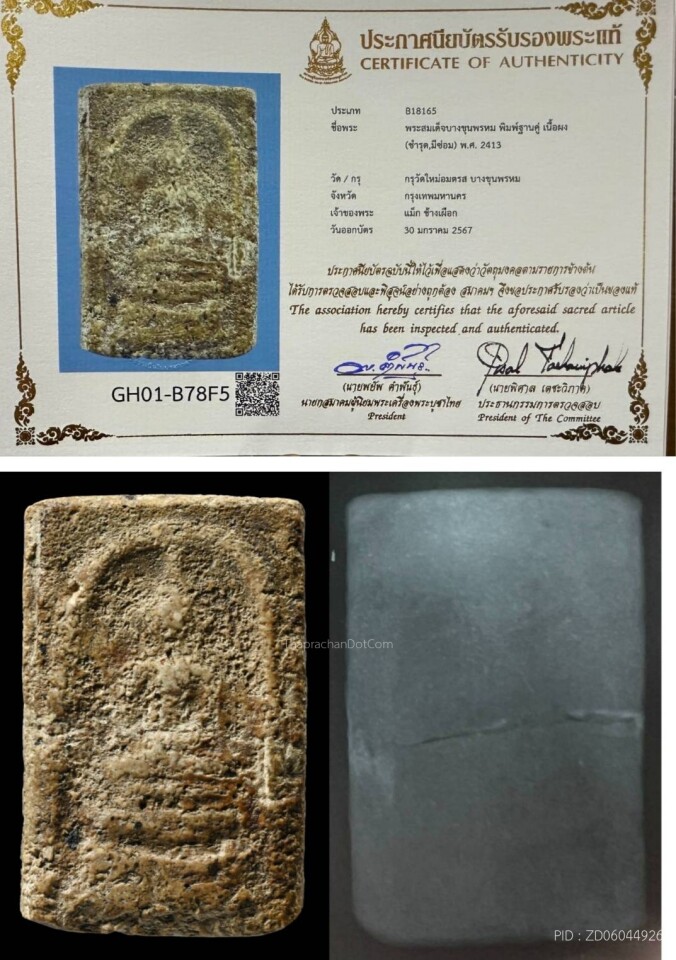 ประกาศนียบัตรรับรองพระแท้
CERTIFICATE OF AUTHENTICITY
ประเภท B18165
ชื่อพระ พระสมเด็จบางขุนพรหม พิมพ์ฐานคู่ เนื้อผง
(ชำรุด,มีซ่อม) พ.ศ. 2413
วัด / กรุ กรุวัดใหม่อมตรส บางขุนพรหม
จังหวัด กรุงเทพมหานคร
เจ้าของพระ แม็ก ช้างเผือก
วันออกบัตร 30 มกราคม 2567
ประกาศนียบัตรฉบับนี้ให้ไว้เพื่อแสดงว่าวัตถุมงคลตามรายการข้างต้น
ได้รับการตรวจสอบและพิสูจน์อย่างถูกต้อง สมาคมฯ จึงขอประกาศรับรองว่าเป็นของแท้
The association hereby certifies that the aforesaid sacred article
has been inspected and authenticated.
GH01-B78F5
(นายพยัพ คำพันธุ์)
นายกสมาคมผู้นิยมพระเครื่องพระบูชาไทย
President
(นายพิศาล เตชะวิภาค)
ประธานกรรมการตรวจสอบ
President of The Committee
ThaprachanDotCom
PID : ZD06044926